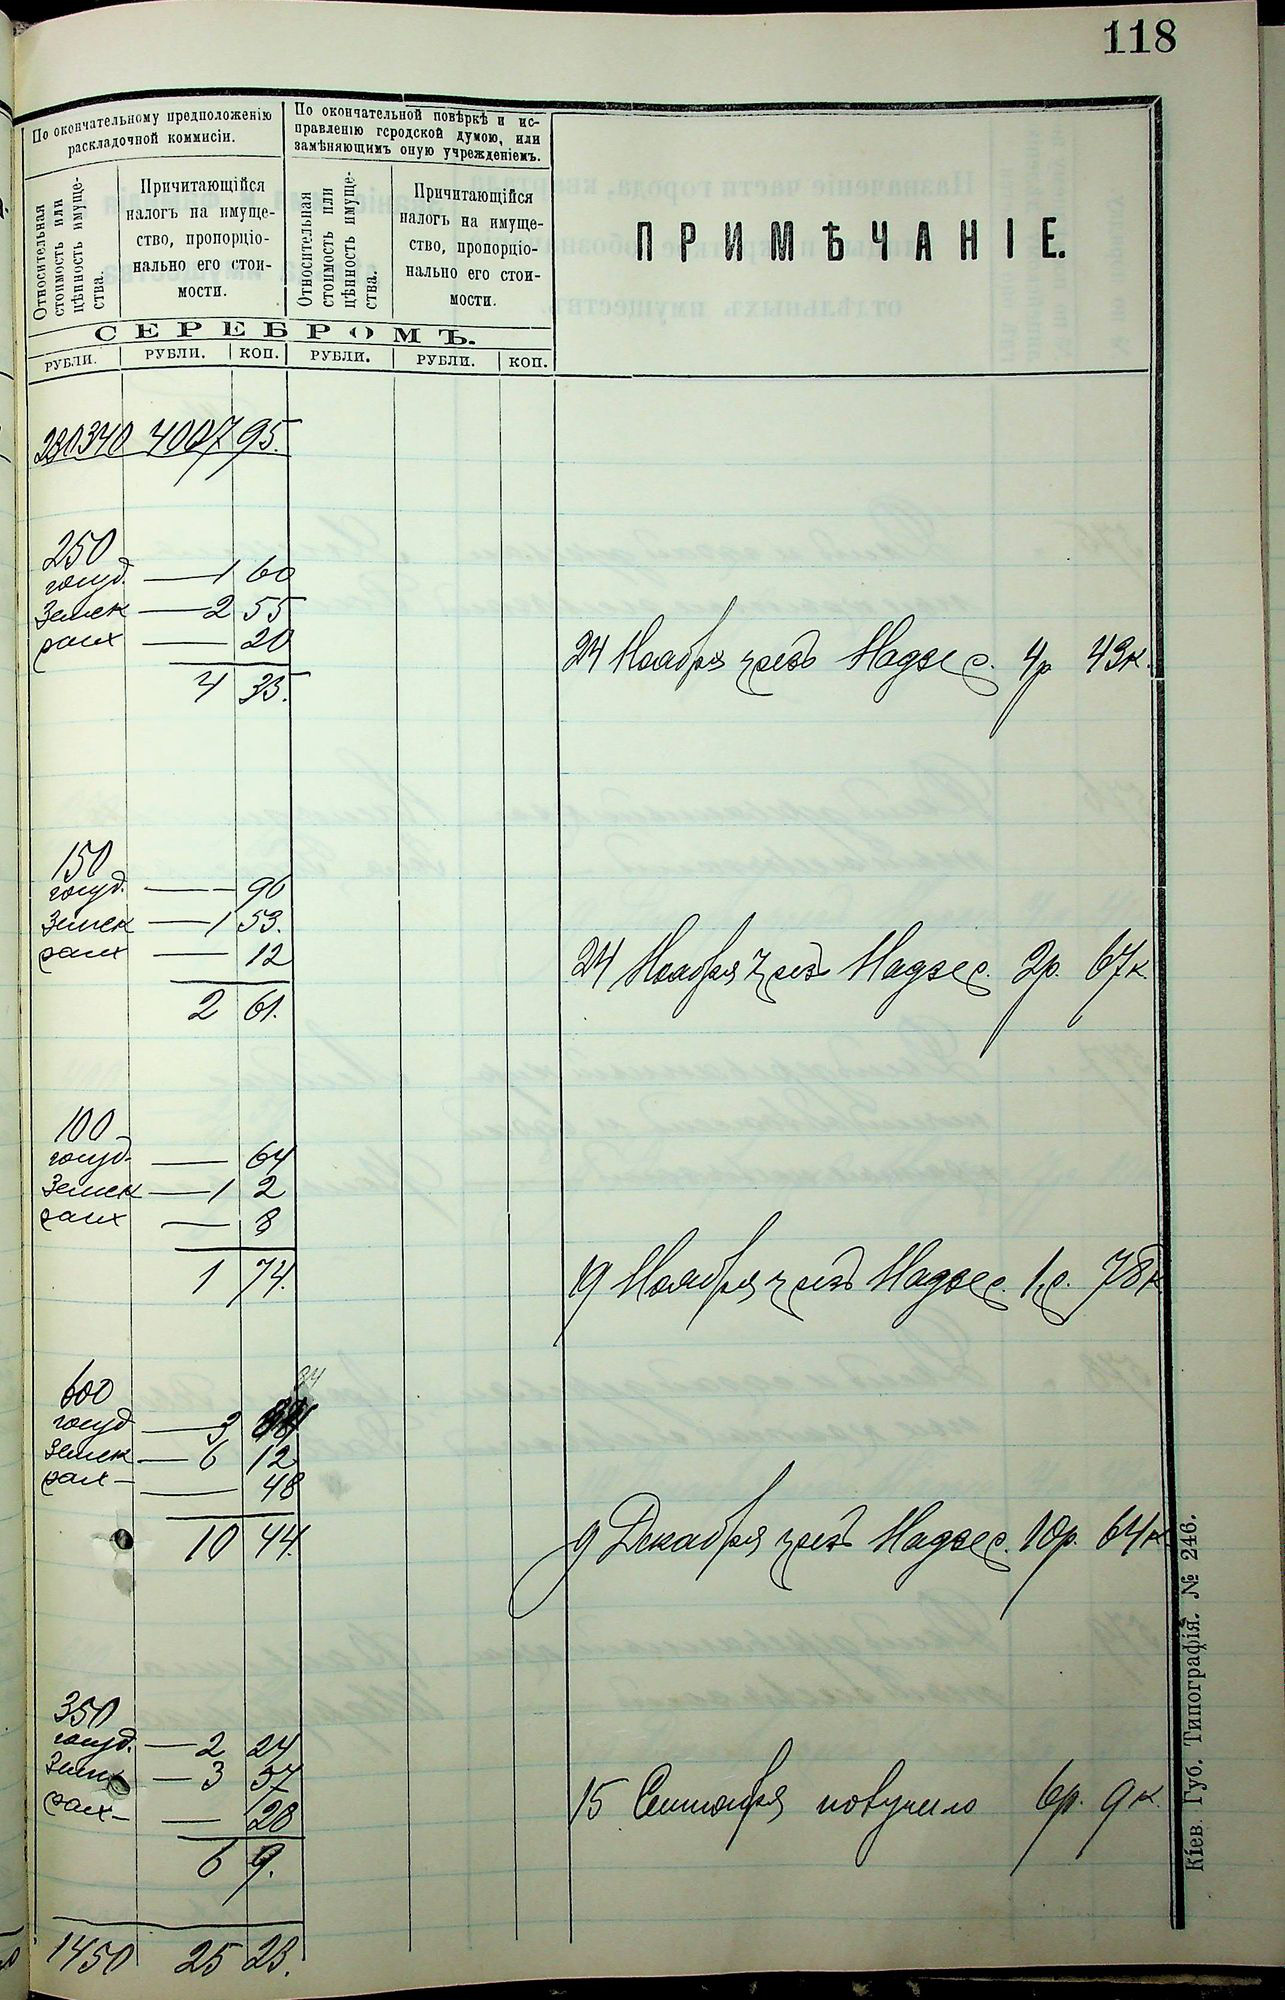 118
По окончательному предположенію
раскладочной коммисіи.
По окончательной повѣркѣ и ис-
правленію городской думою, или
замѣняющимъ оную учрежденіемъ.
Относительная
стоимость или
цѣнность имуще-
ства.
Причитающійся
налогъ на имуще-
ство, пропорціо-
нально его стои-
мости.
Относительная
стоимость или
цѣнность имуще-
ства.
Причитающійся
налогъ на имуще-
ство, пропорціо-
нально его стои-
мости.
ПРИМѢЧАНІЕ.
СЕРЕБРОМЪ.
РУБЛИ. РУБЛИ. КОП. РУБЛИ. РУБЛИ. КОП.
230340 4007 95.
250
госуд. — 1 60
Земск — 2 55
расх — 20
4 35.
24 Ноября чрезъ Надзе.. 4р 43к.
150
госуд. — 96
Земск — 1 53.
расх — 12
2 61.
24 Ноября чрезъ Надзе.. 2р. 67к
100
госуд. — 64
Земск — 1 2
расх — 8
1 74.
19 Ноября чрезъ Надзе.. 1р. 78к
600
84
госуд — 3
Земск — 6 12
расх — 48
10 44.
9 Декабря чрезъ Надзе.. 10р. 64к
350
госуд. — 2 24
Земск — 3 57
расх — 28
6 9.
15 Сентября 6р. 9к.
1450 25 23.
Кіев. Губ. Типографія. № 246.